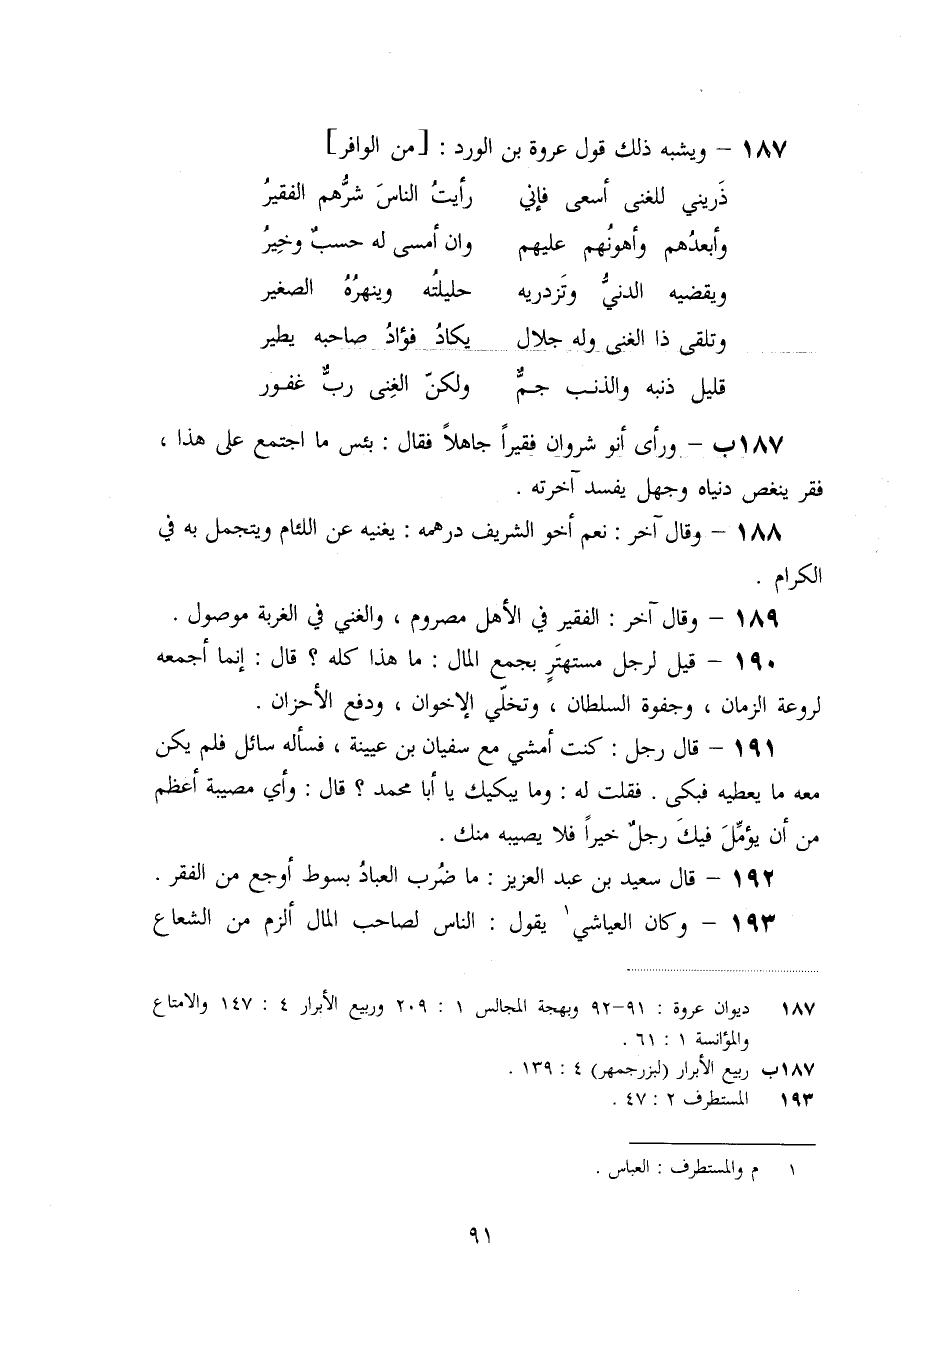 ١٨٧ – ويشبه ذلك قول عروة بن الورد : [من الوافر]
ذَريني للغنى أسعى فإني رأيتُ الناسَ شرُّهم الفقيرُ
وأبعدُهم وأهونُهم عليهم وان أمسى له حسبٌ وخِيرُ
ويقضيه الدنيُّ وتَزدريه حليلتُه وينهرُهُ الصغير
وتلقى ذا الغنى وله جلال يكادُ فؤادُ صاحبه يطير
قليل ذنبه والذنب جمٌّ ولكنّ الغِنى ربٌّ غفور
١٨٧ب – ورأى أنو شروان فقيراً جاهلاً فقال : بئس ما اجتمع على هذا ،
فقر ينغص دنياه وجهل يفسد آخرته .
١٨٨ – وقال آخر : نعم أخو الشريف درهمه : يغنيه عن اللئام ويتجمل به في
الكرام .
١٨٩ – وقال آخر : الفقير في الأهل مصروم ، والغني في الغربة موصول .
١٩٠ – قيل لرجل مستهتَرٍ بجمع المال : ما هذا كله ؟ قال : إنما أجمعه
لروعة الزمان ، وجفوة السلطان ، وتخلّي الإخوان ، ودفع الأحزان .
١٩١ – قال رجل : كنت أمشي مع سفيان بن عيينة ، فسأله سائل فلم يكن
معه ما يعطيه فبكى . فقلت له : وما يبكيك يا أبا محمد ؟ قال : وأي مصيبة أعظم
من أن يؤمِّلَ فيكَ رجلٌ خيراً فلا يصيبه منك .
١٩٢ – قال سعيد بن عبد العزيز : ما ضُرب العبادُ بسوط أوجع من الفقر .
١٩٣ – وكان العياشي١ يقول : الناس لصاحب المال ألزم من الشعاع
١٨٧ ديوان عروة : ٩١–٩٢ وبهجة المجالس ١ : ٢٠٩ وربيع الأبرار ٤ : ١٤٧ والامتاع
والمؤانسة ١ : ٦١ .
١٨٧ب ربيع الأبرار (لبزرجمهر) ٤ : ١٣٩ .
١٩٣ المستطرف ٢ : ٤٧ .
١ م والمستطرف : العباس .
٩١